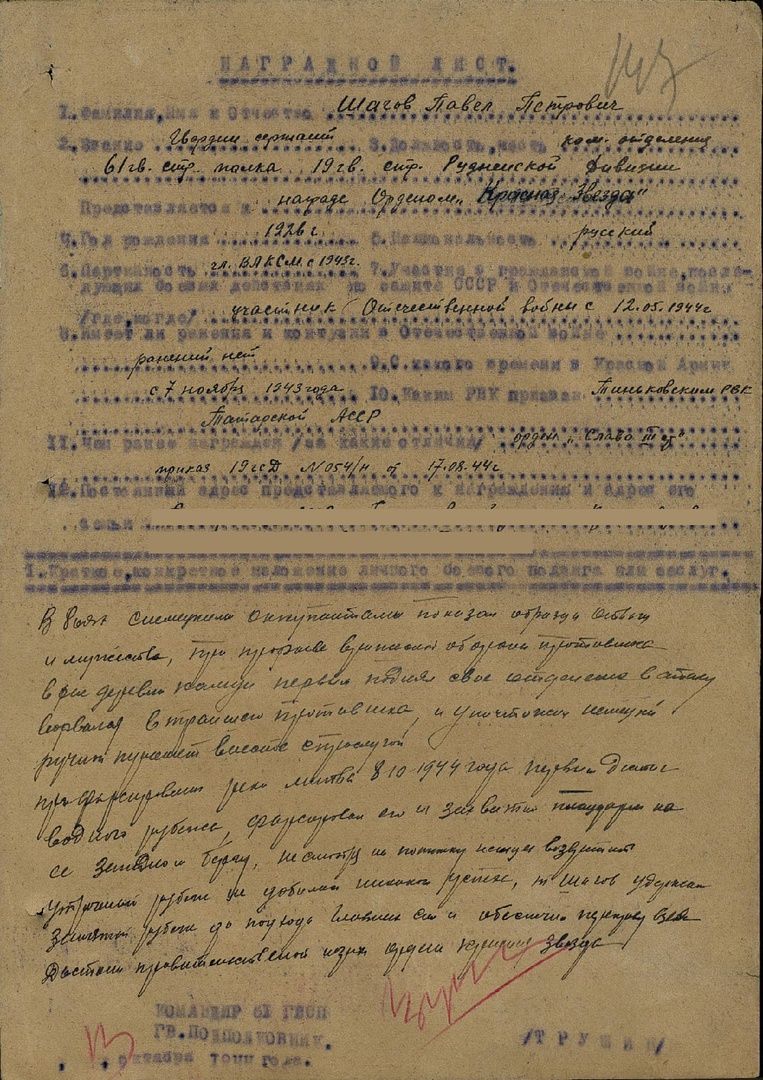 147
НАГРАДНОЙ ЛИСТ.
1. Фамилия, Имя и Отчество Шагов Павел Петрович
2. Звание Гвардии сержант 3. Должность, часть ком. отделения
61 гв. стр. полка 19 гв. стр. Рудненской дивизии
Представляется к награде Орденом „Красная Звезда"
4. Год рождения 1926 г 5. Национальность русский
6. Партийность чл. ВЛКСМ с 1943г. 7. Участие в гражданской войне, после-
дующих боевых действиях по защите СССР и Отечественной войне
/где, когда/ участник Отечественной войны с 12.05.1944г
8. Имеет ли ранения и контузии в Отечественной войне
ранений нет 9. С какого времени в Красной Армии
с 7 ноября 1943 года 10. Каким РВК призван Тиньковским РВК
Татарской АССР
11. Чем ранее награжден /за какие отличия/ орден „Слава III ст"
приказ 19 гсД N 054/н от 17.08.44г
12. Постоянный адрес представляемого к награждению и адрес его
семьи
1. Краткое, конкретное изложение личного боевого подвига или заслуг.
В боях с немецкими оккупантами показал образцы
и мужества, при прорыве обороны противника
в р-не деревни первым поднял свое отделение в атаку
ворвался в траншеи противника, и уничтожил немецкий
ручной пулемет вместе с прислугой
при форсировании реки 8-10-1944 года первый достиг
водного рубежа, форсировал его и захватил плацдарм на
ее западном берегу, не смотря на попытку немцев возвратить
утраченный рубеж не добились успеха, т Шагов удержал
занятый рубеж до подхода главных сил и обеспечил переправу
Достоин правительственной орден красная звезда
КОМАНДИР 61 ГВСП
ГВ. ПОДПОЛКОВНИК.
/ТРУШИН/
13 октября 1944 года.